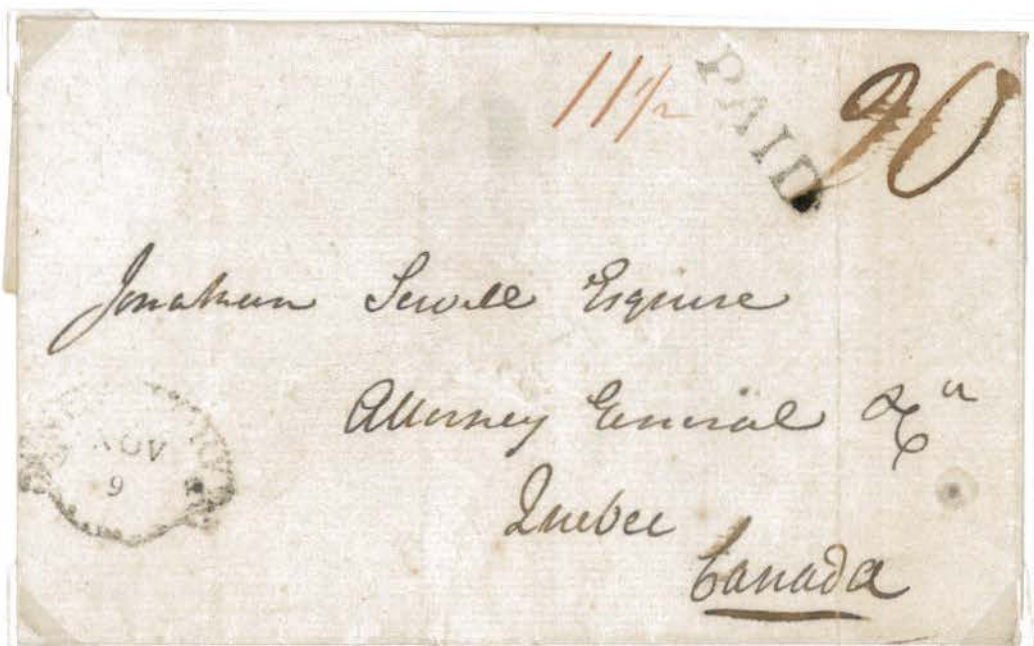 11 1/2 PAID 20
Jonathan Sewell Esquire
Attorney General &c
Quebec
Canada
NOV
9